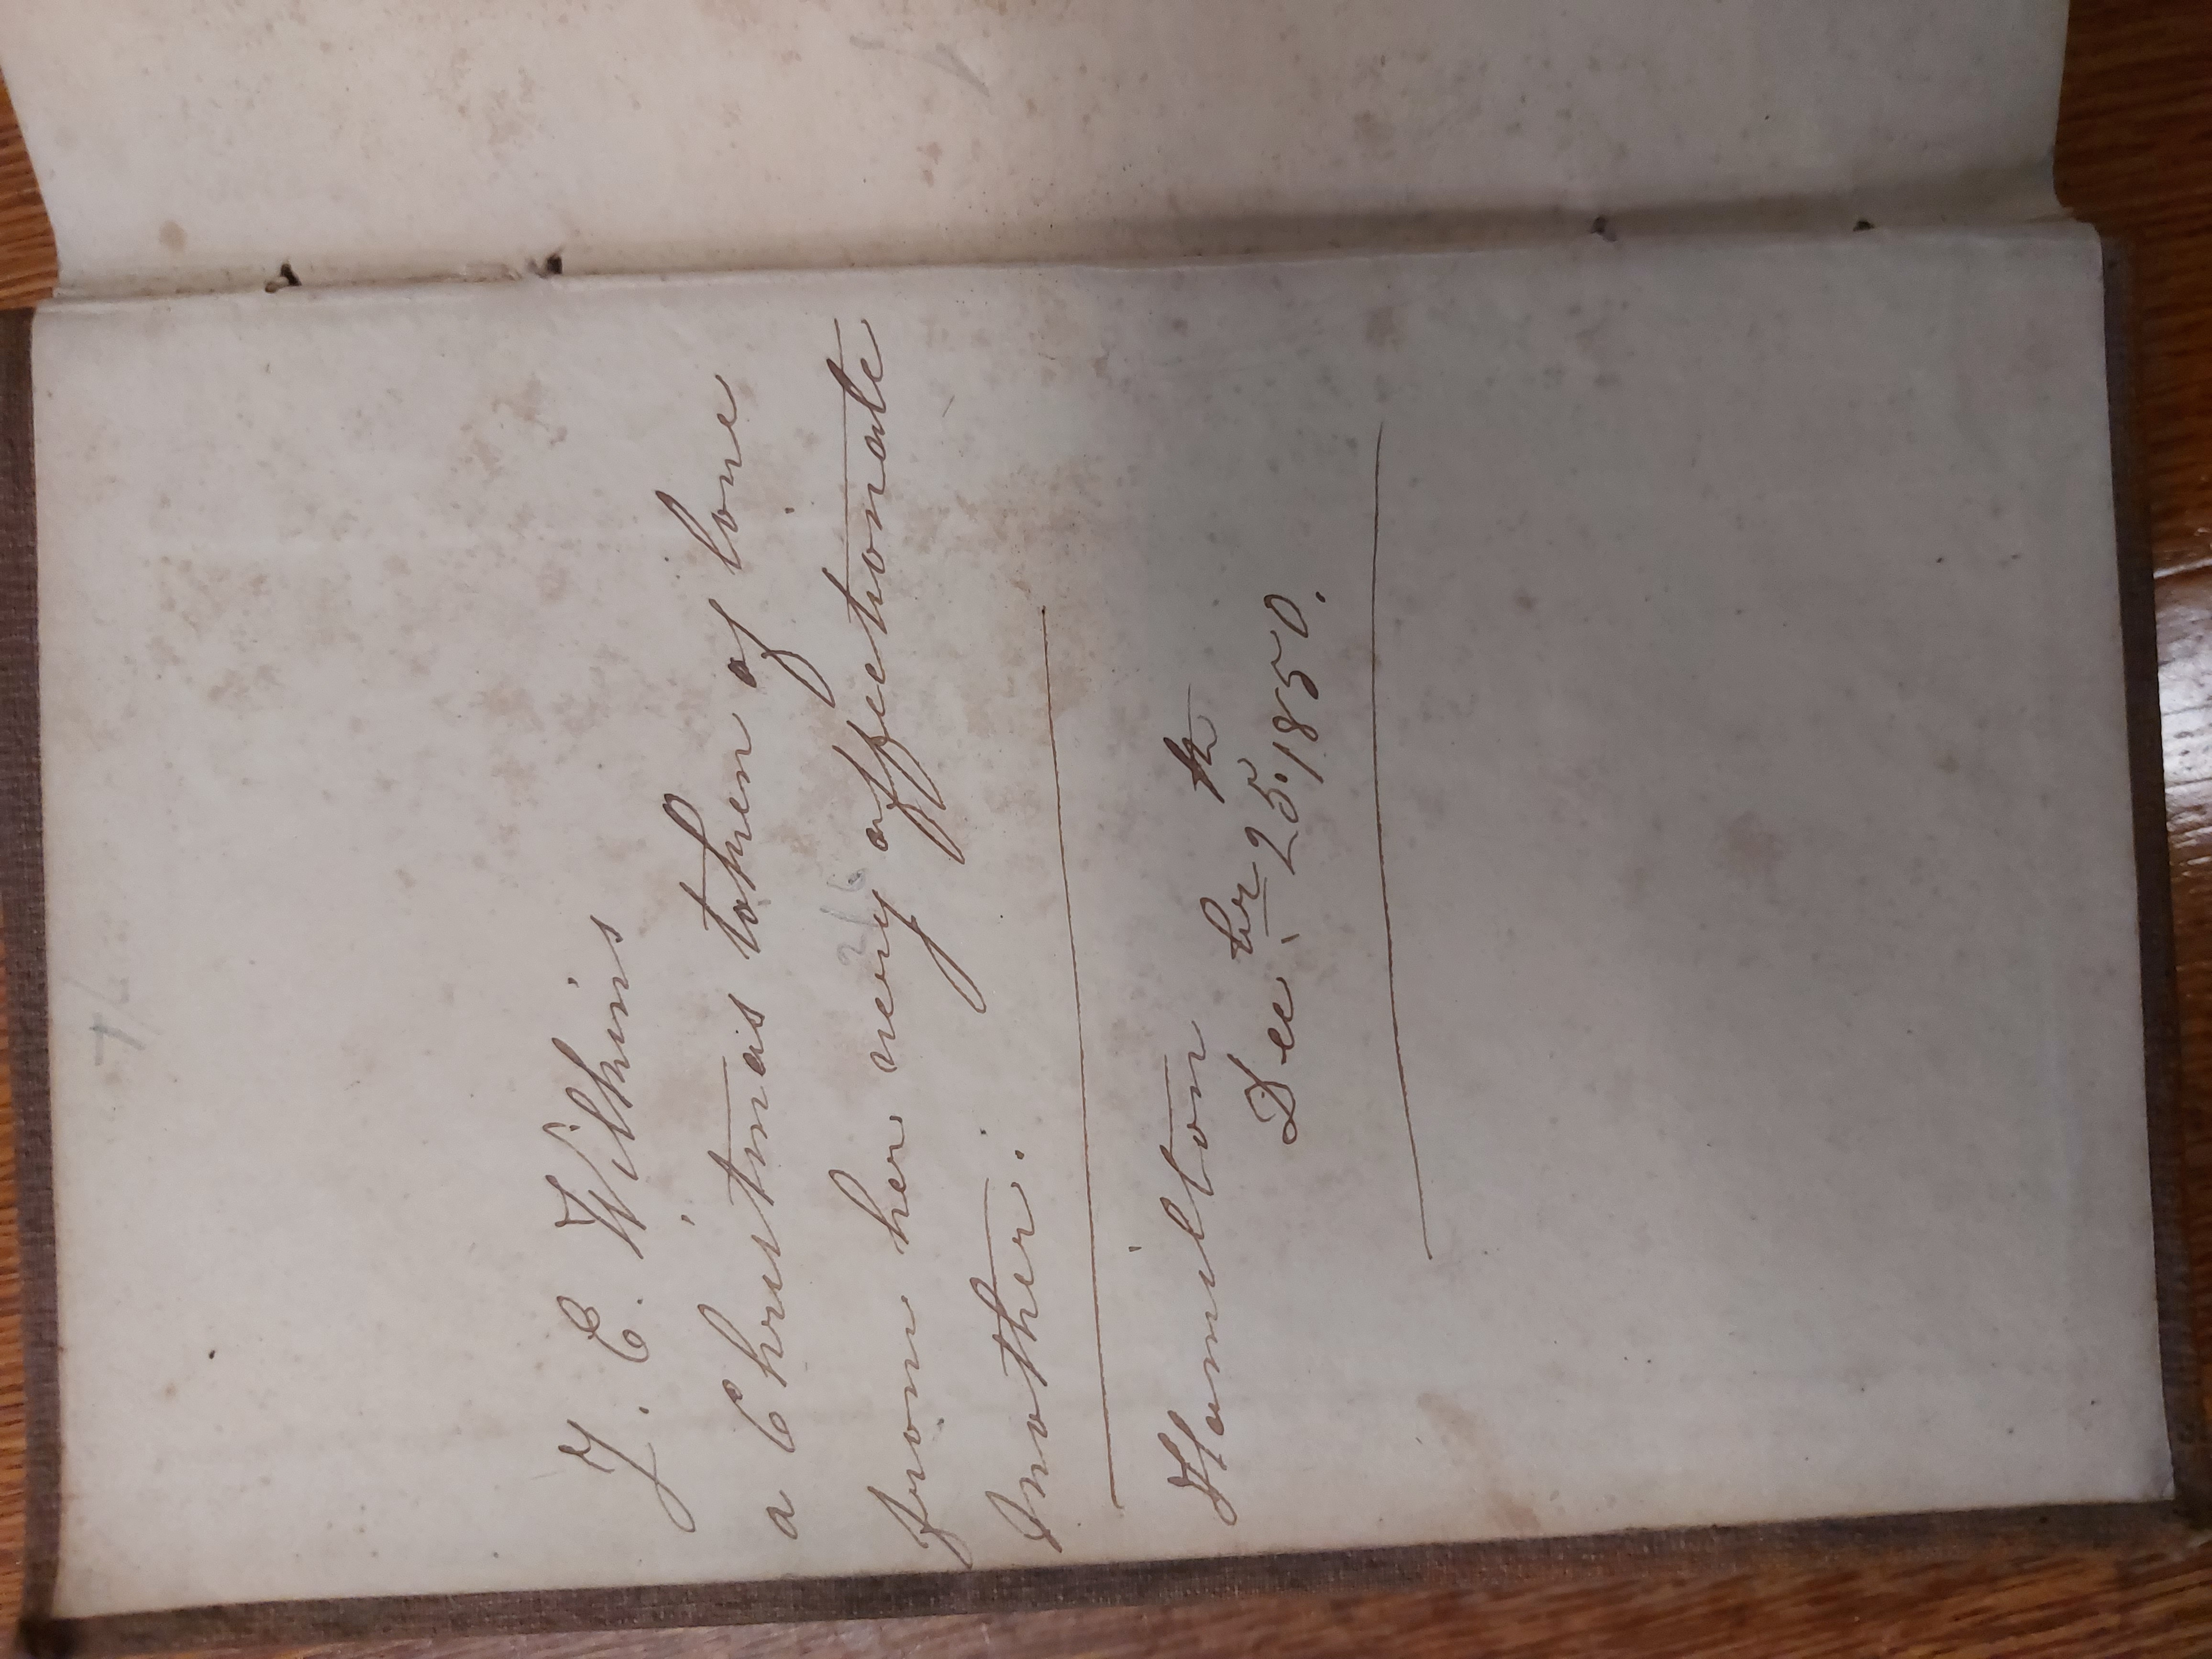 J. E. Wilkins
a Christmas token of love
from her very affectionate
Mother.
Hamilton
Decbr 25th 1850.